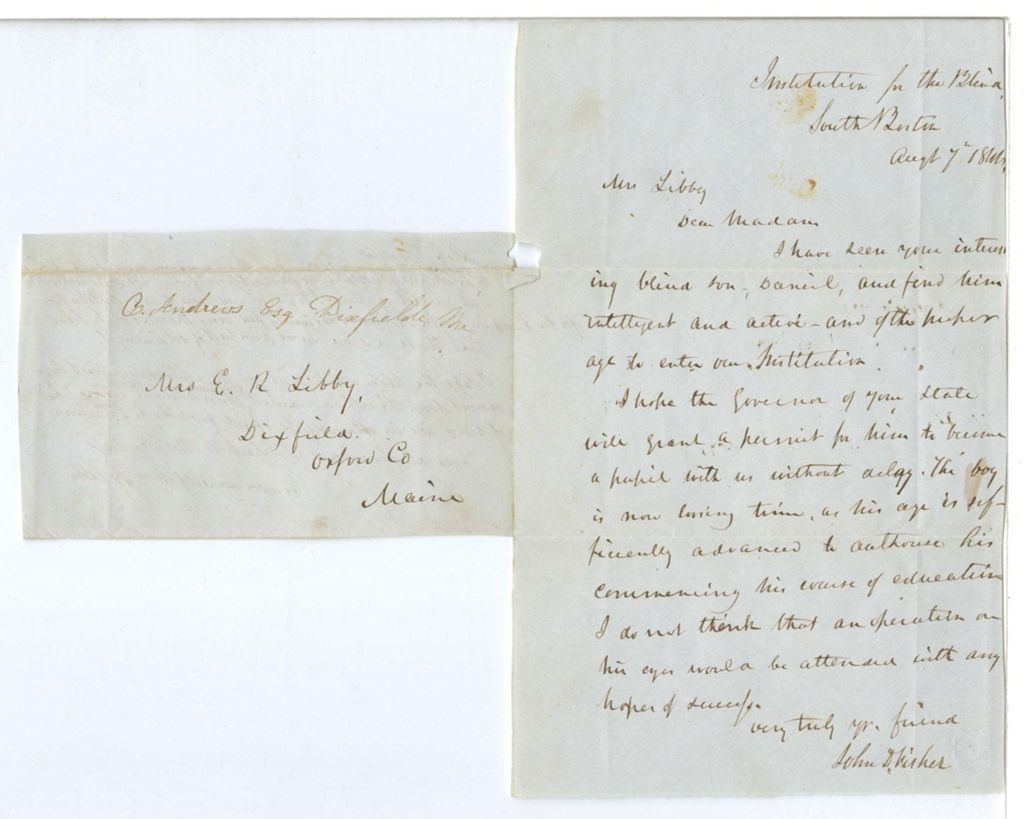 C. Andrews Esq Dixfield Me
Mrs E. R Libby,
Dixfield.
Oxford Co
Maine
Institution for the Blind,
South Boston
Augt 7th
Mrs Libby
Dear Madam
I have seen your interest
ing blind son, Daniel, and find him
intelligent and active - and of the proper
age to enter our Institution.
I hope the Governor of your State
will grant a permit for him to become
a pupil with us without delay. The boy
is now losing time, as his age is suf-
ficiently advanced to authorise his
commencing his course of education
I do not think that an operation on
his eyes would be attended with any
hopes of success.
very truly yr. friend
John D. Fisher